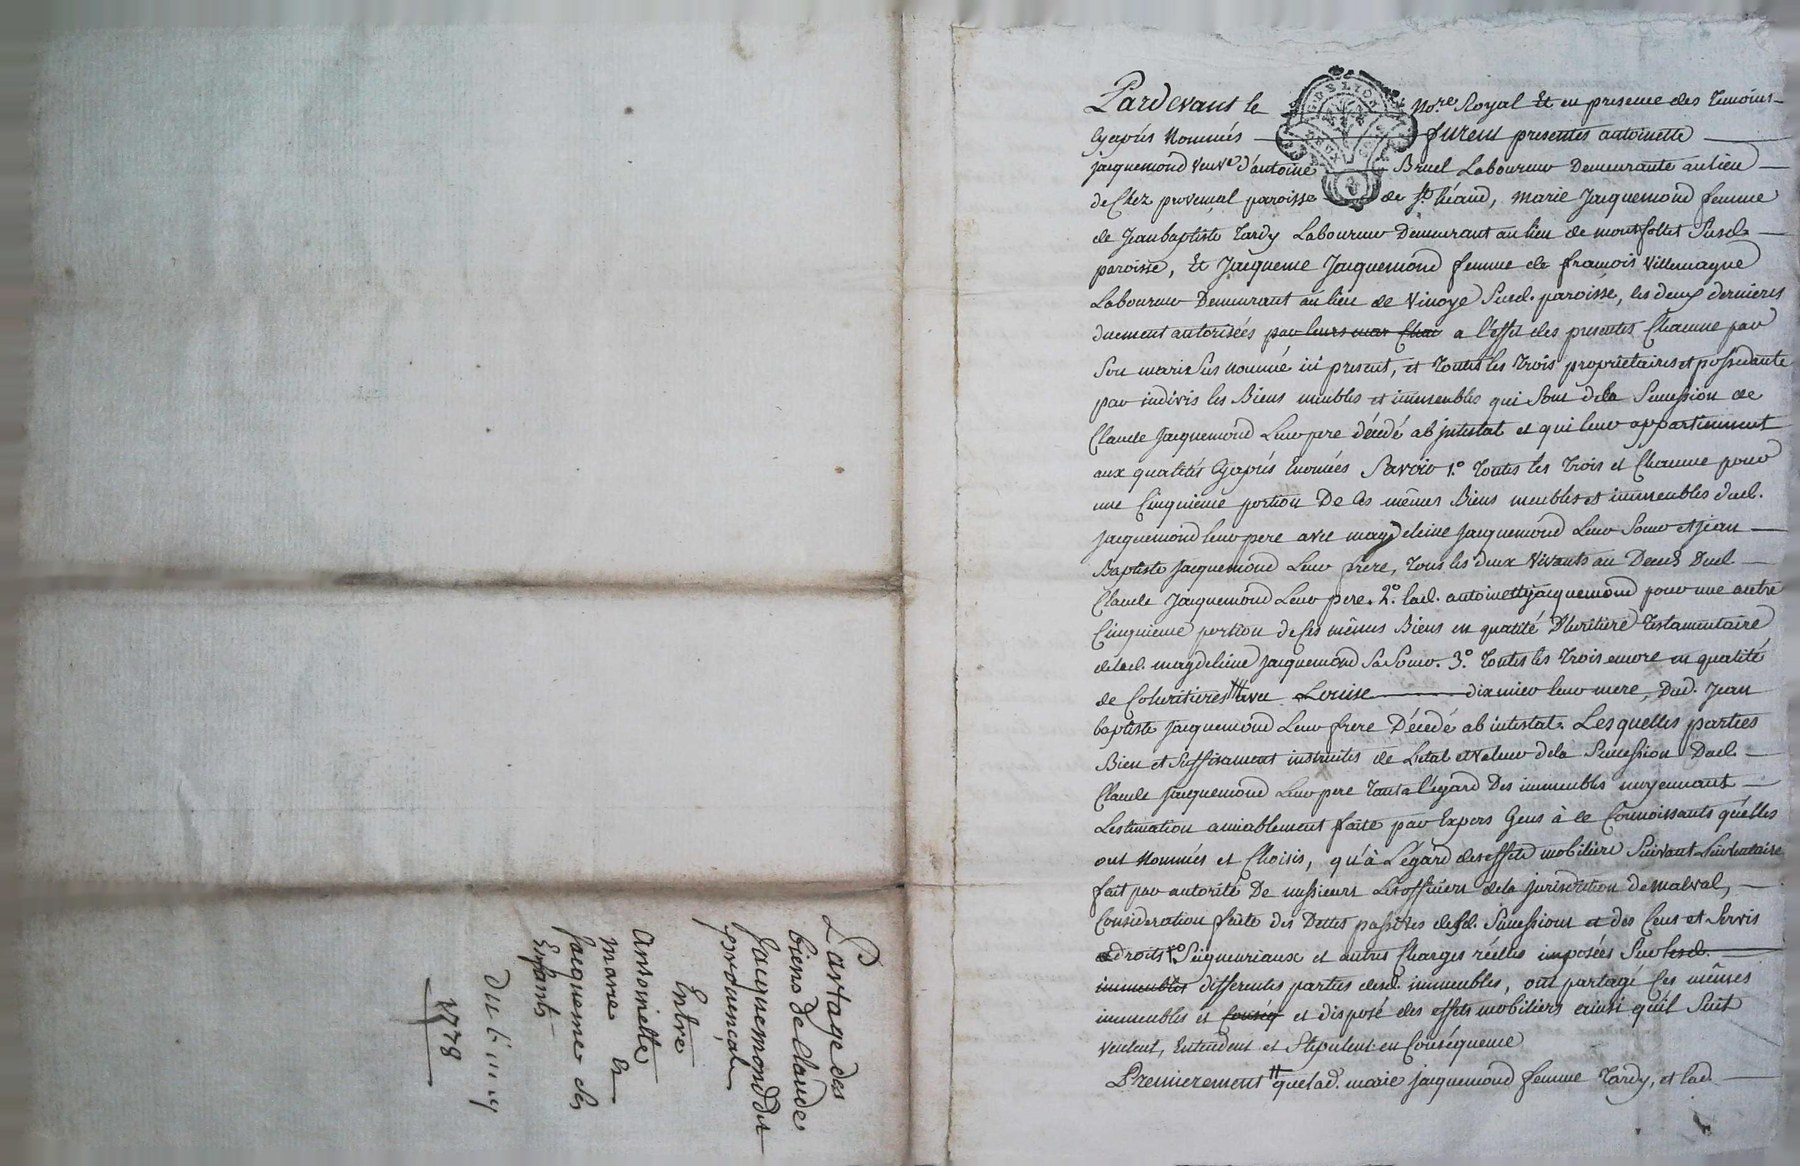 Partage des
biens de Claude
Jacquemond dit
provençal
Entre
antoinette
marie Et
Jacqueme ses
Enfants
Du
1778
Pardevant le Nore Royal Et en presence des temoins
Cyaprés Nommés furent presentes antoinette
Jacquemond veuve d'antoine Bruel Laboureur Demeurante au lieu
de Chez provençal paroisse de St héand, Marie Jacquemond femme
de Jean baptiste Tardy Laboureur Demeurant au lieu de montfollet Susd.
paroisse, Et Jacqueme Jacquemond femme de françois Villemagne
Laboureur Demeurant au lieu de Vinoye Susd. paroisse, les deux dernieres
duement autorisées par leurs mar Chac a l'effet des presentes Chacune par
Son mari Sus nommé ici present, et Toutes les Trois propriétaires et possedante
par indivis les Biens meubles et immeubles qui Sont dela Succession de
Claude Jacquemond Leur pere décédé ab intestat et qui leur appartiennent
aux qualités Cyaprés Enoncées Savoir 1.o Toutes les Trois et Chacune pour
une Cinquieme portion De Ces mêmes Biens meubles et immeubles dud.
Jacquemond leur pere avec magdeleine Jacquemond Leur Soeur et jean
Baptiste Jacquemond Leur frere, Tous les deux Vivants au Decès Dud.
Claude Jacquemond Leur pere. 2.o lad. antoinette jacquemond pour une autre
Cinquieme portion de Ces mêmes Biens en qualité D'heritiere Testamentaire
delad. magdeleine Jacquemond Sa Soeur. 3.o Toutes les Trois encore en qualité
de Coheritieres avec Louise dixmier leur mere, Dud. Jean
baptiste Jacquemond Leur frere Décedé ab intestat. Lesquelles parties
Bien et Suffisament instruites de L'etat et valeur dela Succession Dud.
Claude Jacquemond Leur pere Tant a l'égard Des immeubles moyennant
L'estimation amiablement faite par Expers Gens à ce Connoissants qu'elles
ont Nommés et Choisis, qu'à L'égard des effets mobiliers Suivant L'inventaire
fait par autorité De messieurs Les officiers dela jurisdiction de malval,
Consideration faite des Dettes passives desd. Successions et des Cens et Servis
droits Seigneuriaux et autres Charges réelles imposées Sur lesd.
immeubles differentes parties desd. immeubles, ont partagé Ces mêmes
immeubles et Conseq et disposé des effets mobiliers ainsi qu'il Suit
veulent, Entendent et Stipulent en Conséquence
Premierement que lad. marie jacquemond femme Tardy, et lad.